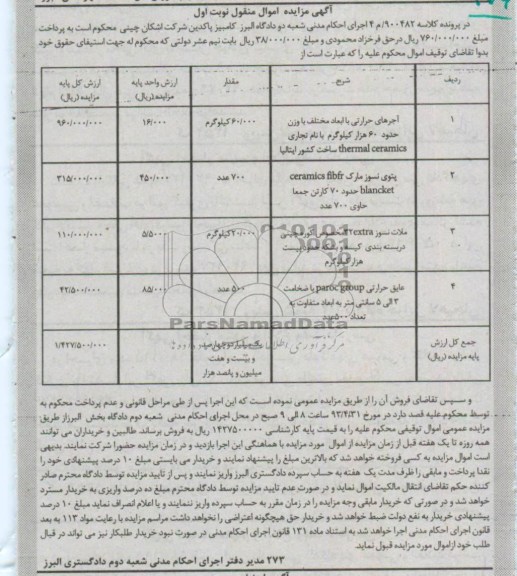 آگهی مزایده اموال منقول نوبت اول
در پرونده کلاسه ۹۰۰۴۸۲/م ۴ اجرای احکام مدنی شعبه دو دادگاه البرز کامبیز پاکدین شرکت اشکان چینی محکوم است به پرداخت
مبلغ ۷۶۰/۰۰۰/۰۰۰ ریال درحق فرخزاد محمودی و مبلغ ۳۸/۰۰۰/۰۰۰ ریال بابت نیم عشر دولتی که محکوم له جهت استیفای حقوق خود
بدوا تقاضای توقیف اموال محکوم علیه را که عبارت است از
ردیف شرح مقدار ارزش واحد پایه مزایده (ریال) ارزش کل پایه مزایده (ریال)
۱ آجرهای حرارتی با ابعاد مختلف با وزن ۶۰/۰۰۰ کیلوگرم ۱۶/۰۰۰ ۹۶۰/۰۰۰/۰۰۰
حدود ۶۰ هزار کیلوگرم با نام تجاری
thermal ceramics ساخت کشور ایتالیا
۲ پتوی نسوز مارک ceramics fibfr ۷۰۰ عدد ۴۵۰/۰۰۰ ۳۱۵/۰۰۰/۰۰۰
blancket حدود ۷۰ کارتن جمعا
حاوی ۷۰۰ عدد
۳ ملات نسوز extra ۲۰/۰۰۰ کیلوگرم ۵/۵۰۰ ۱۱۰/۰۰۰/۰۰۰
دربسته بندی
هزار کیلوگرم
۴ عایق حرارتی paroc group با ضخامت ۵۰۰ عدد ۸۵/۰۰۰ ۴۲/۵۰۰/۰۰۰
۳ الی ۵ سانتی متر به ابعاد متفاوت به
تعداد ۵۰۰ عدد
جمع کل ارزش پایه مزایده (ریال) یک میلیارد و چهارصد و بیست و هفت میلیون و پانصد هزار ۱/۴۲۷/۵۰۰/۰۰۰
ParsNamadData
و سپس تقاضای فروش آن را از طریق مزایده عمومی نموده است که این اجرا پس از طی مراحل قانونی و عدم پرداخت محکوم به
توسط محکوم علیه قصد دارد در مورخ ۹۳/۴/۳۱ ساعت ۸ الی ۹ صبح در محل اجرای احکام مدنی شعبه دوم دادگاه بخش البرز از طریق
مزایده عمومی اموال توقیفی محکوم علیه را به قیمت پایه کارشناسی ۱۴۲۷۵۰۰۰۰۰ ریال به فروش برساند. طالبین و خریداران می توانند
همه روزه تا یک هفته قبل از زمان مزایده از اموال مورد مزایده با هماهنگی این اجرا بازدید و در زمان مزایده حضورا شرکت نمایند. بدیهی
است اموال مزایده به کسی فروخته خواهد شد که بالاترین مبلغ را پیشنهاد نمایند و خریدار می بایستی مبلغ ۱۰ درصد پیشنهادی خود را
نقدا پرداخت و مابقی را ظرف مدت یک هفته به حساب سپرده دادگستری البرز واریز نمایند و پس از تایید مزایده توسط دادگاه محترم صادر
کننده حکم تقاضای انتقال مالکیت اموال نماید و در صورت عدم تایید مزایده توسط دادگاه محترم مبلغ ده درصد واریزی به خریدار مسترد
خواهد شد و در صورتی که خریدار مابقی وجه مزایده را در زمان مقرر به حساب سپرده واریز ننمایند و یا اعلام انصراف نماید مبلغ ۱۰ درصد
پیشنهادی خریدار به نفع دولت ضبط خواهد شد و خریدار حق هیچگونه اعتراضی را نخواهد داشت مراسم مزایده با رعایت مواد ۱۱۳ به بعد
قانون اجرای احکام مدنی اجرا خواهد شد به استناد ماده ۱۳۱ قانون اجرای احکام مدنی در صورت نبود خریدار طلبکار نیز می تواند در قبال
طلب خود ازاموال مورد مزایده قبول نماید.
۲۷۳ مدیر دفتر اجرای احکام مدنی شعبه دوم دادگستری البرز